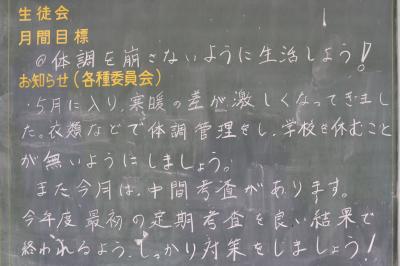 生徒会
月間目標
◎体調を崩さないように生活しよう!
お知らせ(各種委員会)
・5月に入り、寒暖の差が激しくなってきまし
た。衣類などで体調管理をし、学校を休むこと
が無いようにしましょう。
また今月は、中間考査があります。
今年度最初の定期考査を良い結果で
終われるよう、しっかり対策をしましょう!